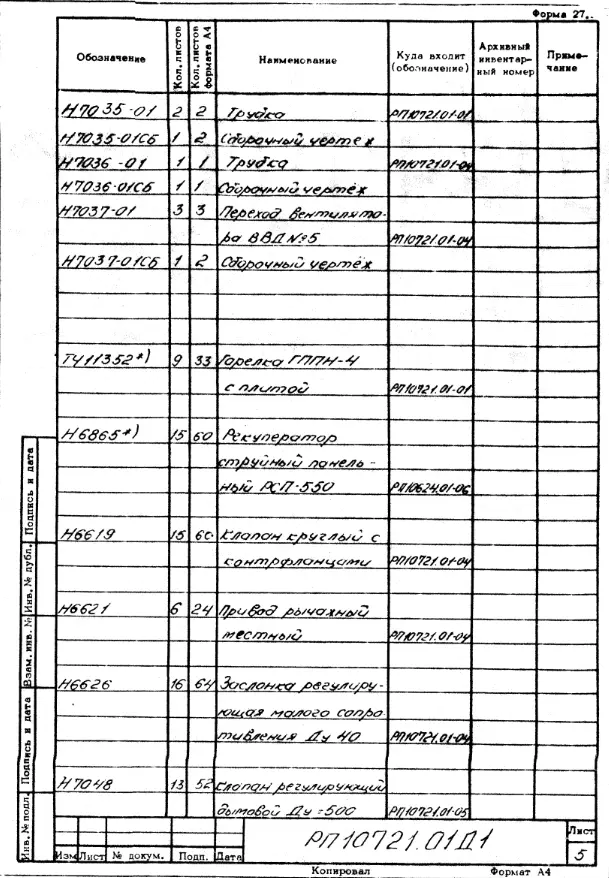 Форма 27..
Обозначение Кол. листов Кол. листов формата А4 Наименование Куда входит (обозначение) Архивный инвентарный номер Примечание
Н7035-01 2 2 Трубка РП10721.01-01
Н7035-01СБ 1 2 Сборочный чертеж
Н7036-01 1 1 Трубка РП10721.01-04
Н7036-01СБ 1 1 Сборочный чертёж
Н7037-01 3 3 Переход вентилято-
ра ВВД №5 РП10721.01-04
Н7037-01СБ 1 2 Сборочный чертёж
ТЧ11352*) 9 33 Горелка ГППН-4
с плитой РП10721.01-01
Н6865*) 15 60 Рекуператор
струйный панель-
ный РСП-550 РП10624.01-06
Н6619 15 60 Клапан круглый с
контрфланцами РП10721.01-04
Н6621 6 24 Привод рычажный
местный РП10721.01-04
Н6626 16 64 Заслонка регулиру-
ющая малого сопро
тивления Ду 40 РП10721.01-04
Н7048 13 52 Клапан регулирующий
дымовой Ду-500 РП10721.01-05
Инв. № подл. Подпись и дата Взам. инв. № Инв. № дубл. Подпись и дата
РП10721.01Д1
Лист
5
Изм Лист № докум. Подп. Дата
Копировал Формат А4